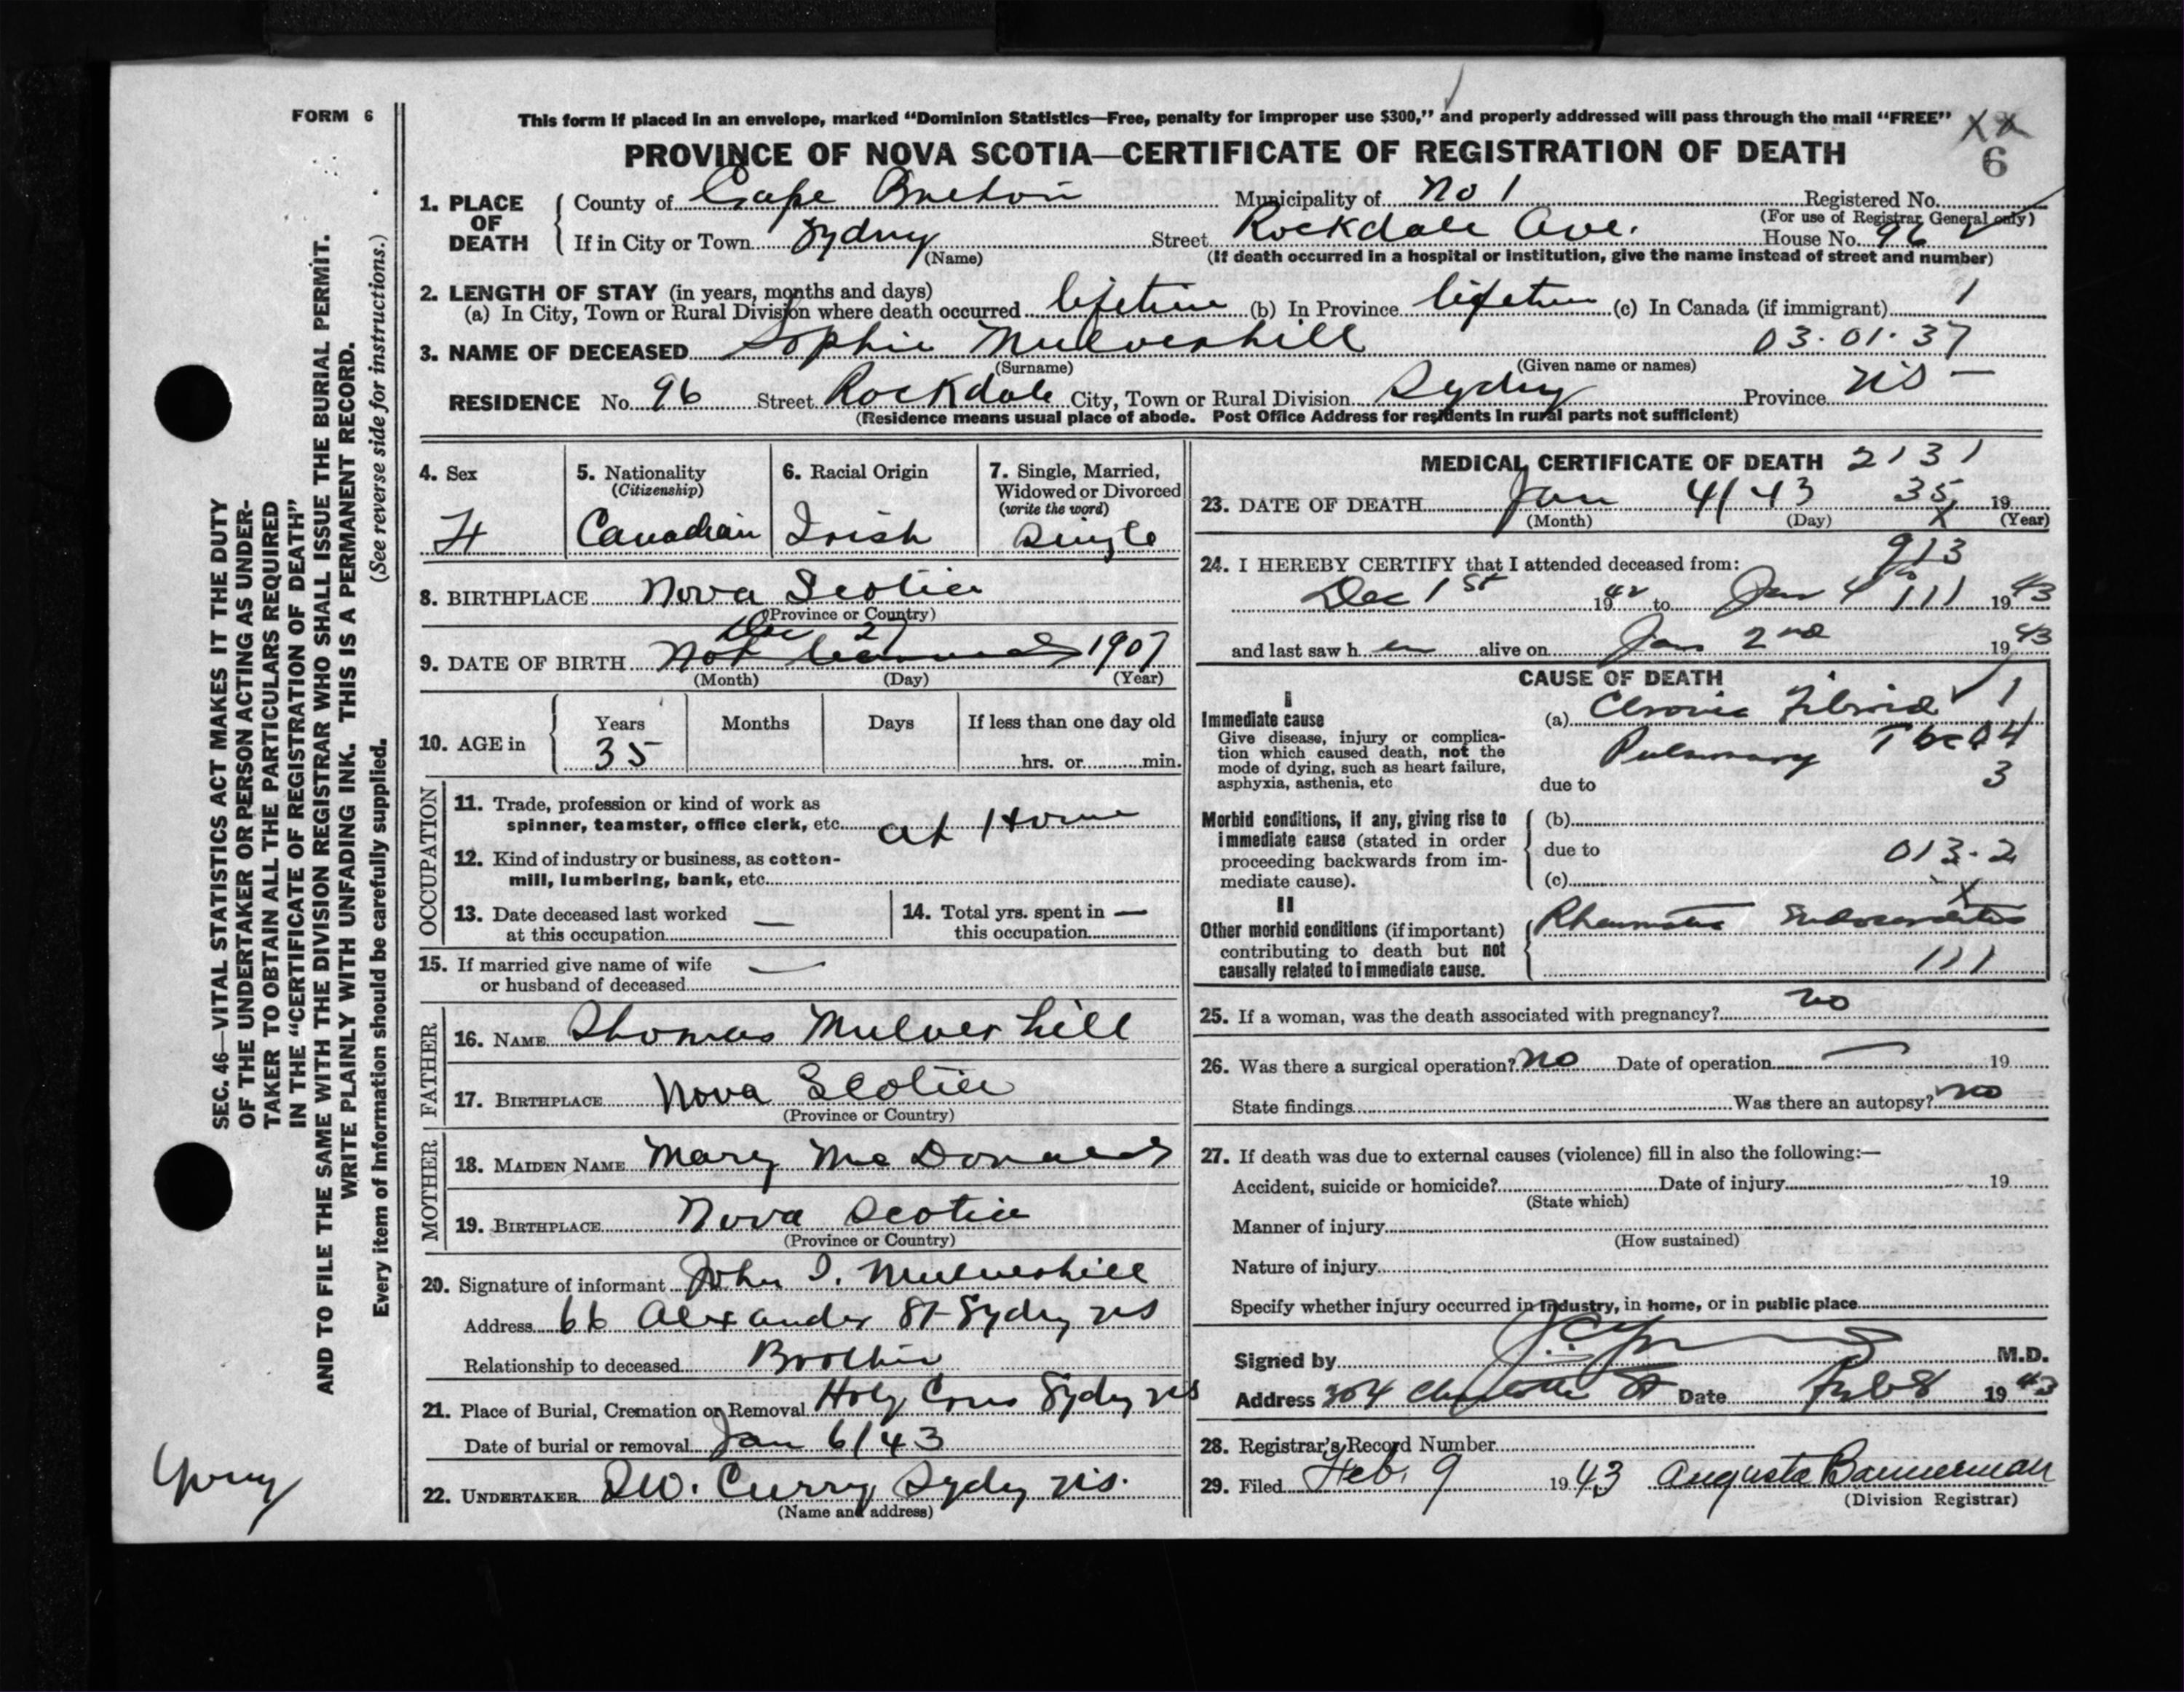 FORM 6
This form if placed in an envelope, marked “Dominion Statistics—Free, penalty for improper use $300,” and properly addressed will pass through the mail “FREE” XX
PROVINCE OF NOVA SCOTIA—CERTIFICATE OF REGISTRATION OF DEATH 6
1. PLACE OF DEATH
County of Cape Breton Municipality of No 1 Registered No.
(For use of Registrar General only)
If in City or Town Sydney Street Rockdale Ave. House No. 96
(Name) (If death occurred in a hospital or institution, give the name instead of street and number)
2. LENGTH OF STAY (in years, months and days)
(a) In City, Town or Rural Division where death occurred lifetime (b) In Province lifetime (c) In Canada (if immigrant) 1
3. NAME OF DECEASED Sophie Mulverhill 03.01.37
(Surname) (Given name or names)
RESIDENCE No 96 Street Rockdale City, Town or Rural Division Sydney Province NS –
(Residence means usual place of abode. Post Office Address for residents in rural parts not sufficient)
4. Sex
F
5. Nationality
(Citizenship)
Canadian
6. Racial Origin
Irish
7. Single, Married,
Widowed or Divorced
(write the word)
Single
8. BIRTHPLACE Nova Scotia
(Province or Country)
Dec 27
9. DATE OF BIRTH Not 1907
(Month) (Day) (Year)
10. AGE in
Years Months Days If less than one day old
35 hrs. or min.
OCCUPATION
11. Trade, profession or kind of work as
spinner, teamster, office clerk, etc. at Home
12. Kind of industry or business, as cotton-
mill, lumbering, bank, etc.
13. Date deceased last worked —
at this occupation
14. Total yrs. spent in —
this occupation
15. If married give name of wife —
or husband of deceased
FATHER
16. NAME Thomas Mulverhill
17. BIRTHPLACE Nova Scotia
(Province or Country)
MOTHER
18. MAIDEN NAME Mary McDonald
19. BIRTHPLACE Nova Scotia
(Province or Country)
20. Signature of informant John J. Mulverhill
Address 66 Alexander St Sydney NS
Relationship to deceased Brother
21. Place of Burial, Cremation or Removal Holy Cross Sydney NS
Date of burial or removal Jan 6/43
22. UNDERTAKER DW. Curry Sydney NS.
(Name and address)
MEDICAL CERTIFICATE OF DEATH 2131
23. DATE OF DEATH Jan 4/43 35 19
(Month) (Day) X (Year)
24. I HEREBY CERTIFY that I attended deceased from: 913
Dec 1st 1942 to Jan 4 111 1943
and last saw h er alive on Jan 2nd 1943
CAUSE OF DEATH
I
Immediate cause
Give disease, injury or complica-
tion which caused death, not the
mode of dying, such as heart failure,
asphyxia, asthenia, etc
(a) Chronic Fibroid ✓ 1
Pulmonary Tbc 04
due to 3
Morbid conditions, if any, giving rise to
immediate cause (stated in order
proceeding backwards from im-
mediate cause).
(b)
due to 013.2
(c)
X
II
Other morbid conditions (if important)
contributing to death but not
causally related to immediate cause.
Rheumatic Endocarditis
111
25. If a woman, was the death associated with pregnancy? no
26. Was there a surgical operation? no Date of operation — 19
State findings Was there an autopsy? no
27. If death was due to external causes (violence) fill in also the following:—
Accident, suicide or homicide? Date of injury 19
(State which)
Manner of injury
(How sustained)
Nature of injury
Specify whether injury occurred in industry, in home, or in public place
Signed by M.D.
Address 304 Charlotte St Date Feb 8 1943
28. Registrar's Record Number
29. Filed Feb. 9 1943 Augusta Bannerman
(Division Registrar)
SEC. 46—VITAL STATISTICS ACT MAKES IT THE DUTY
OF THE UNDERTAKER OR PERSON ACTING AS UNDER-
TAKER TO OBTAIN ALL THE PARTICULARS REQUIRED
IN THE “CERTIFICATE OF REGISTRATION OF DEATH”
AND TO FILE THE SAME WITH THE DIVISION REGISTRAR WHO SHALL ISSUE THE BURIAL PERMIT.
WRITE PLAINLY WITH UNFADING INK. THIS IS A PERMANENT RECORD.
Every item of information should be carefully supplied. (See reverse side for instructions.)